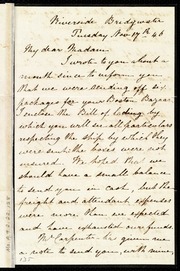 Riverside Bridgwater
Tuesday Nov 17th 46
My dear Madam
I wrote to you about a
month since to inform you
that we were sending off six
packages for your Boston Bazaar.
I enclose the Bill of lading by
which you will see all particulars
respecting the ship by which they
were sent the boxes were not
insured. We hoped that we
should have a small balance
to send you in cash, but the
freight and attendant expenses
were more than we expected
and have exhausted our funds.
Mr Carpenter has given me
a note to send you, with mine,